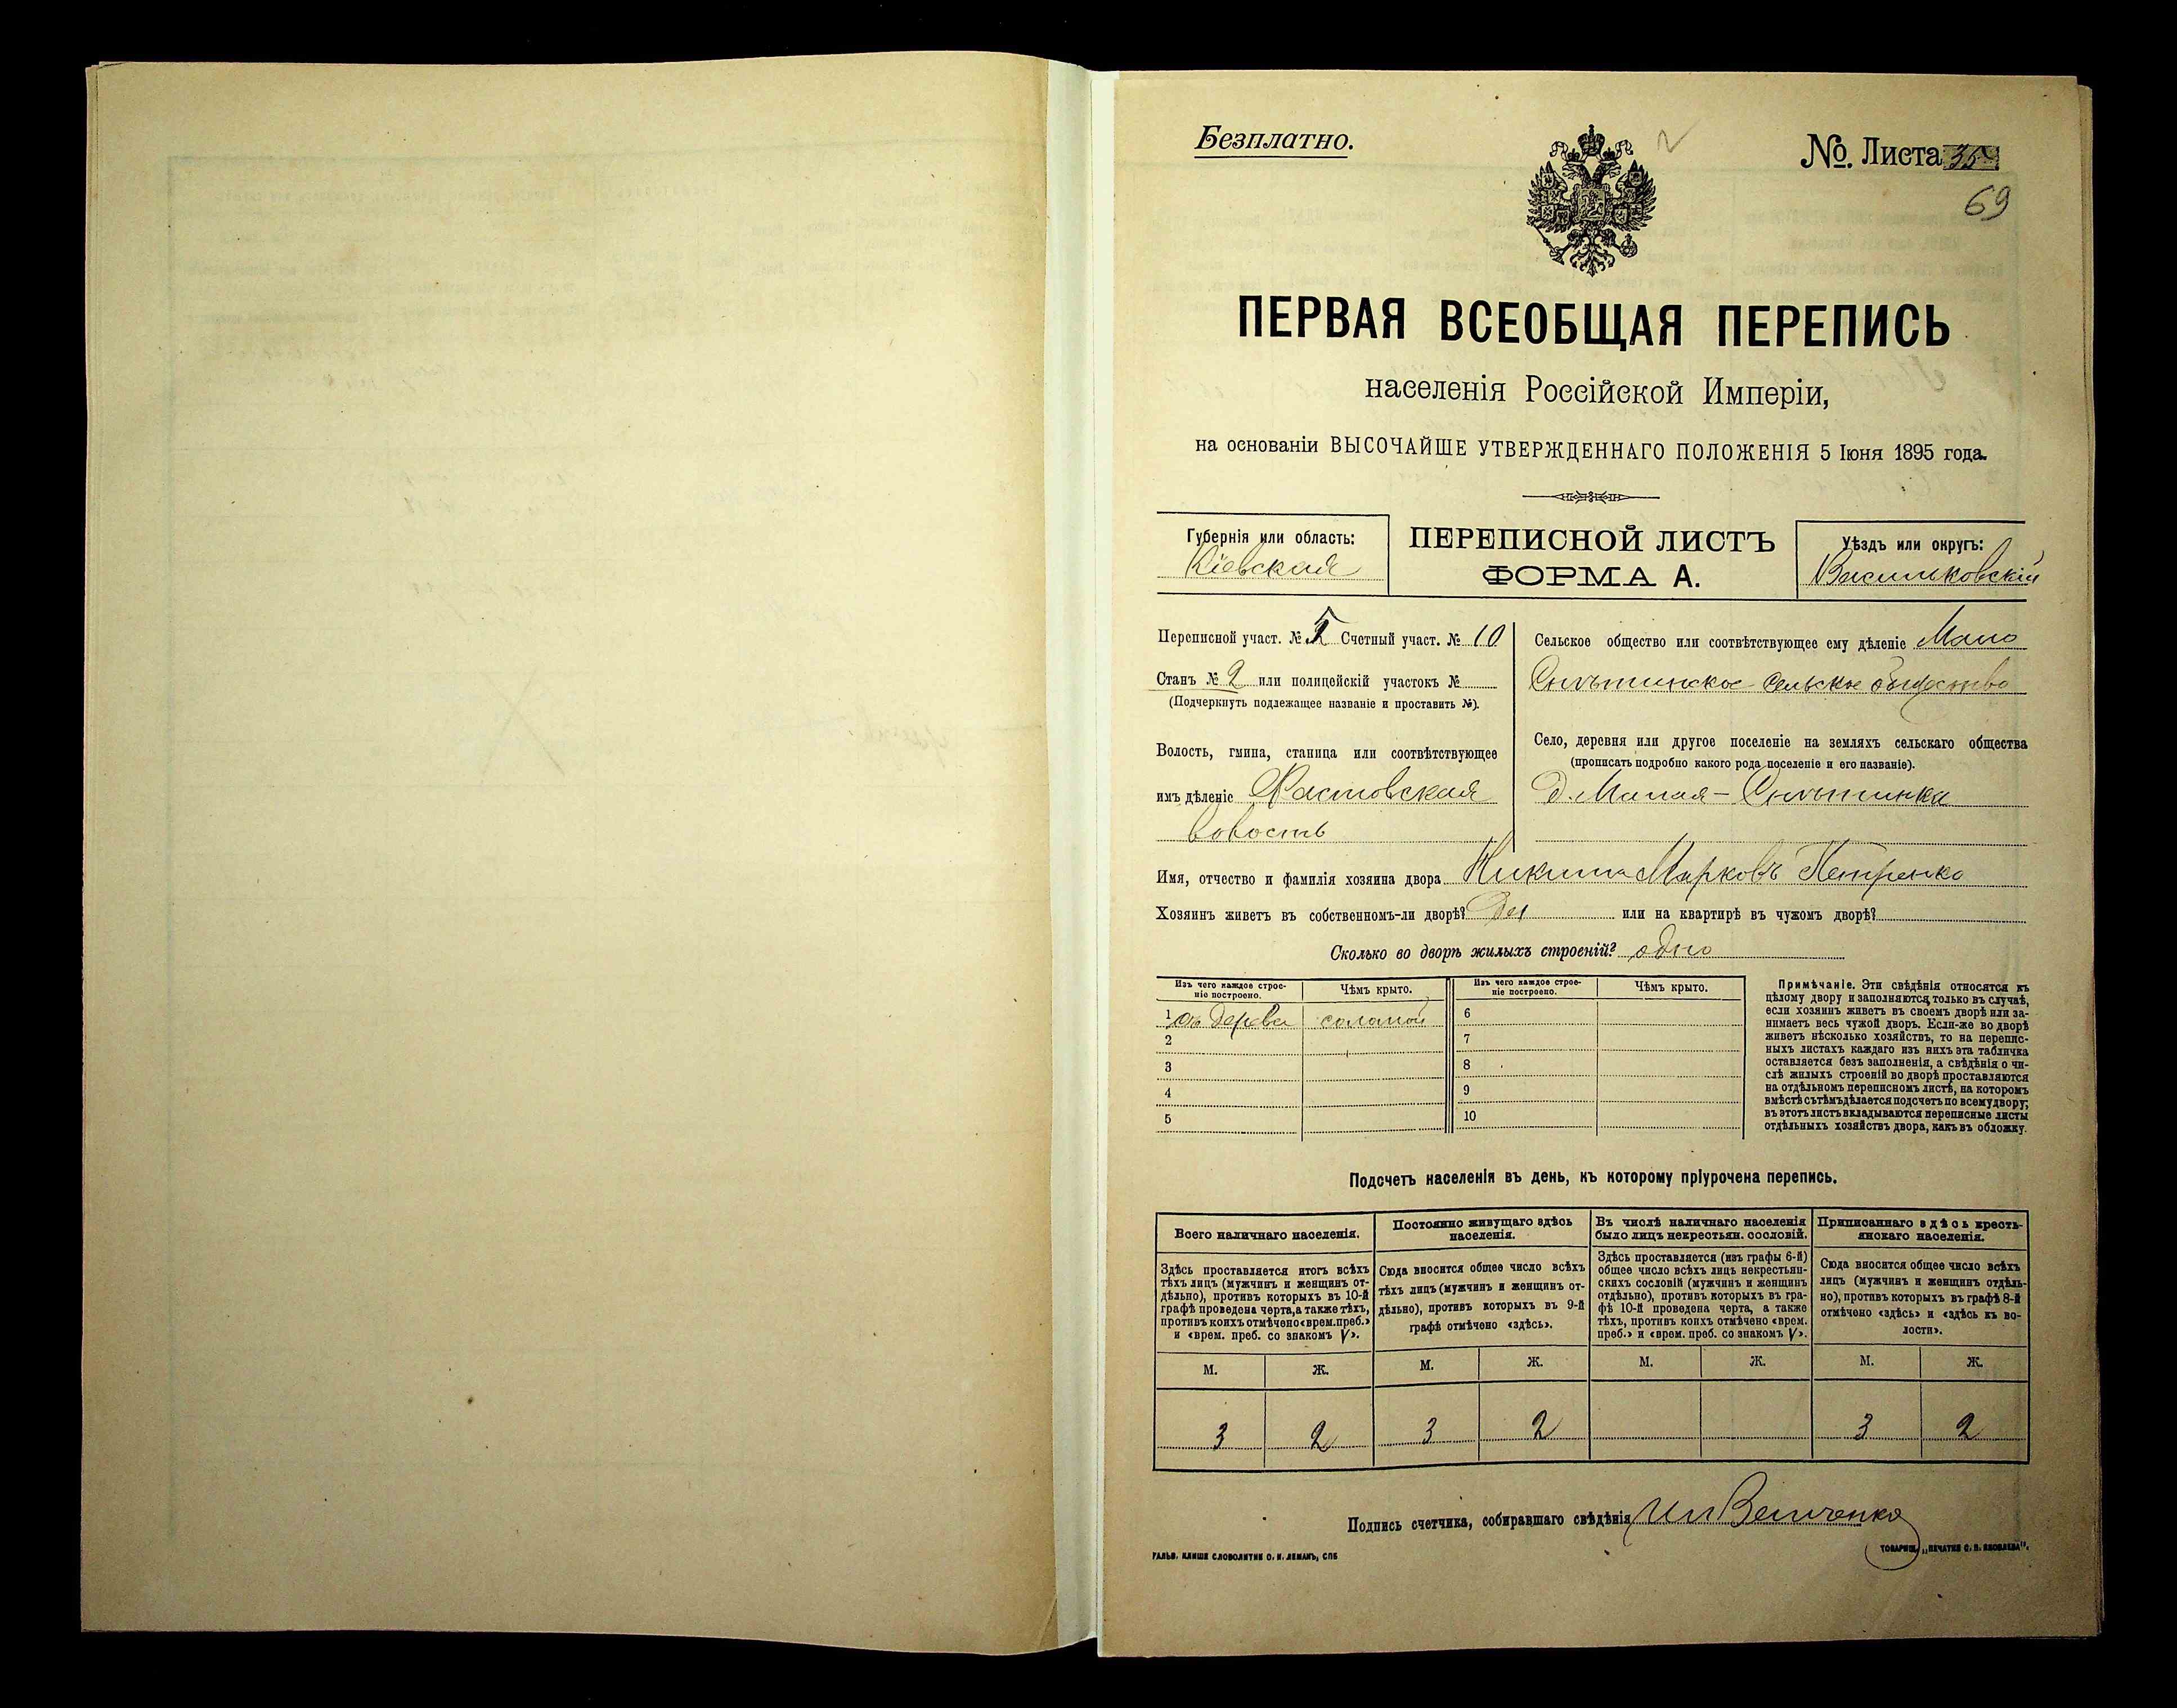 Безплатно.
№ Листа 35
69
ПЕРВАЯ ВСЕОБЩАЯ ПЕРЕПИСЬ
населенія Россійской Имперіи,
на основаніи ВЫСОЧАЙШЕ УТВЕРЖДЕННАГО ПОЛОЖЕНІЯ 5 Іюня 1895 года.
Губернія или область:
Кіевская
ПЕРЕПИСНОЙ ЛИСТЪ
ФОРМА А.
Уѣздъ или округъ:
Васильковскій
Переписной участ. № Счетный участ. № 10
Станъ № 2 или полицейскій участокъ №
(Подчеркнуть подлежащее названіе и проставить №).
Волость, гмина, станица или соотвѣтствующее
имъ дѣленіе Фастовская
волость
Сельское общество или соотвѣтствующее ему дѣленіе Мало
Снѣтинское сельское общество
Село, деревня или другое поселеніе на земляхъ сельскаго общества
(прописать подробно какого рода поселеніе и его названіе).
д. Малая-Снѣтинка
Имя, отчество и фамилія хозяина двора Никита Марковъ Петренко
Хозяинъ живетъ въ собственномъ-ли дворѣ? Да или на квартирѣ въ чужомъ дворѣ?
Сколько во дворѣ жилыхъ строеній? одно
Изъ чего каждое строе-
ніе построено.
Чѣмъ крыто.
Изъ чего каждое строе-
ніе построено.
Чѣмъ крыто.
1 дерева соломой 6
2 7
3 8
4 9
5 10
Примѣчаніе. Эти свѣдѣнія относятся къ
цѣлому двору и заполняются только въ случаѣ,
если хозяинъ живетъ въ своемъ дворѣ или за-
нимаетъ весь чужой дворъ. Если-же во дворѣ
живетъ нѣсколько хозяйствъ, то на перепис-
ныхъ листахъ каждаго изъ нихъ эта табличка
оставляется безъ заполненія, а свѣдѣнія о чи-
слѣ жилыхъ строеній во дворѣ проставляются
на отдѣльномъ переписномъ листѣ, на которомъ
вмѣстѣ съ тѣмъ дѣлается подсчетъ по всему двору;
въ этотъ листъ вкладываются переписные листы
отдѣльныхъ хозяйствъ двора, какъ въ обложку.
Подсчетъ населенія въ день, къ которому пріурочена перепись.
Всего наличнаго населенія.
Здѣсь проставляется итогъ всѣхъ
тѣхъ лицъ (мужчинъ и женщинъ от-
дѣльно), противъ которыхъ въ 10-й
графѣ проведена черта, а также тѣхъ,
противъ коихъ отмѣчено «врем. преб.»
и «врем. преб. со знакомъ V».
Постоянно живущаго здѣсь
населенія.
Сюда вносится общее число всѣхъ
тѣхъ лицъ (мужчинъ и женщинъ от-
дѣльно), противъ которыхъ въ 9-й
графѣ отмѣчено «здѣсь».
Въ числѣ наличнаго населенія
было лицъ некрестьян. сословій.
Здѣсь проставляется (изъ графы 6-й)
общее число всѣхъ лицъ некрестьян-
скихъ сословій (мужчинъ и женщинъ
отдѣльно), противъ которыхъ въ гра-
фѣ 10-й проведена черта, а также
тѣхъ, противъ коихъ отмѣчено «врем.
преб.» и «врем. преб. со знакомъ V».
Приписаннаго здѣсь кресть-
янскаго населенія.
Сюда вносится общее число всѣхъ
лицъ (мужчинъ и женщинъ отдѣль-
но), противъ которыхъ въ графѣ 8-й
отмѣчено «здѣсь» и «здѣсь къ во-
лости».
М. Ж. М. Ж. М. Ж. М. Ж.
3 2 3 2 3 2
Подпись счетчика, собиравшаго свѣдѣнія
ГАЛЬВ. КЛИШЕ СЛОВОЛИТНИ О. И. ЛЕМАНЪ, СПБ
ТОВАРИЩ. „ПЕЧАТНЯ С. П. ЯКОВЛЕВА".